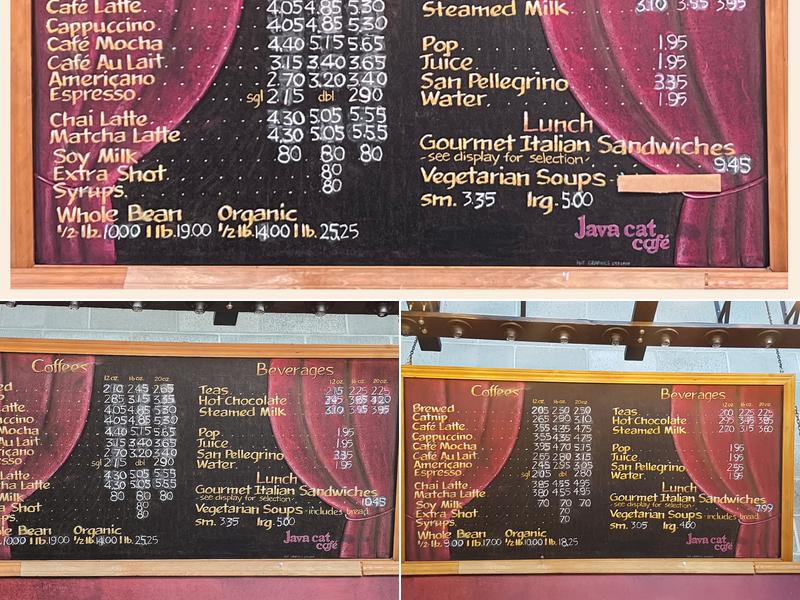 Café Latte. 4.05 4.85 5.30
Cappuccino 4.05 4.85 5.30
Café Mocha 4.40 5.15 5.65
Café Au Lait. 3.15 3.40 3.65
Americano 2.70 3.20 3.40
Espresso sgl 2.15 dbl 2.90
Chai Latte 4.30 5.05 5.55
Matcha Latte 4.30 5.05 5.55
Soy Milk .80 .80 .80
Extra Shot .80
Syrups. .80
Whole Bean Organic
1/2 lb. 10.00 1 lb. 19.00 1/2 lb. 14.00 1 lb. 25.25
Steamed Milk 3.10 3.95 3.95
Pop. 1.95
Juice. 1.95
San Pellegrino 3.35
Water. 1.95
Lunch
Gourmet Italian Sandwiches
-see display for selection- 9.45
Vegetarian Soups
sm. 3.35 lrg. 5.00
Java cat
café
Coffees
12 oz. 16 oz. 20 oz.
2.10 2.45 2.65
2.85 3.15 3.35
4.05 4.85 5.30
4.05 4.85 5.30
4.40 5.15 5.65
Au Lait. 3.15 3.40 3.65
2.70 3.20 3.40
sgl 2.15 dbl 2.90
4.30 5.05 5.55
4.30 5.05 5.55
Milk .80 .80 .80
Shot .80
.80
Bean Organic
10.00 1 lb. 19.00 1/2 lb. 14.00 1 lb. 25.25
Beverages
12 oz. 16 oz. 20 oz.
Teas 2.15 2.25 2.25
Hot Chocolate 3.45 3.85 4.20
Steamed Milk 3.10 3.95 3.95
Pop. 1.95
Juice. 1.95
San Pellegrino 3.35
Water. 1.95
Lunch
Gourmet Italian Sandwiches
-see display for selection- 10.45
Vegetarian Soups -includes bread
sm. 3.35 lrg. 5.00
Java cat
café
Coffees
12 oz. 16 oz. 20 oz.
Brewed 2.05 2.30 2.50
Catnip 2.65 2.90 3.10
Café Latte. 3.55 4.35 4.75
Cappuccino 3.55 4.35 4.75
Café Mocha 3.95 4.75 5.15
Café Au Lait. 2.65 2.80 3.15
Americano 2.45 2.95 3.05
Espresso sgl 2.05 dbl 2.80
Chai Latte 3.85 4.55 4.95
Matcha Latte 3.80 4.55 4.95
Soy Milk .70 .70 .70
Extra Shot .70
Syrups. .70
Whole Bean Organic
1/2 lb. 9.00 1 lb. 17.00 1/2 lb. 10.00 1 lb. 18.25
Beverages
12 oz. 16 oz. 20 oz.
Teas 2.00 2.25 2.25
Hot Chocolate 2.95 3.45 3.85
Steamed Milk 2.20 3.15 3.60
Pop. 1.95
Juice. 1.95
San Pellegrino 2.55
Water. 1.95
Lunch
Gourmet Italian Sandwiches
-see display for selection- 7.99
Vegetarian Soups -includes bread
sm. 3.05 lrg. 4.60
Java cat
café